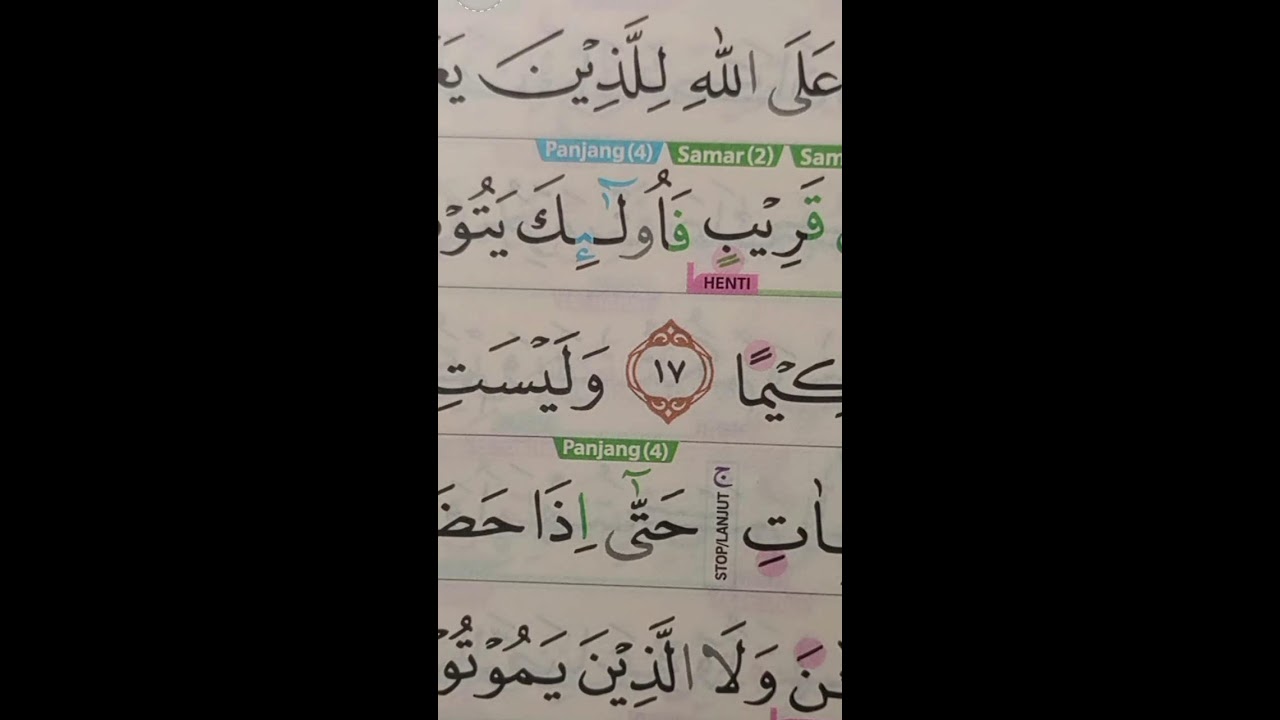 عَلَى اللّٰهِ لِلَّذِيْنَ
Panjang (4) Samar (2)
قَرِيْبٍ فَاُولٰۤىِٕكَ
HENTI
١٧ وَلَيْسَتِ
Panjang (4)
STOP/LANJUT ج
حَتّٰىٓ اِذَا
وَلَا الَّذِيْنَ